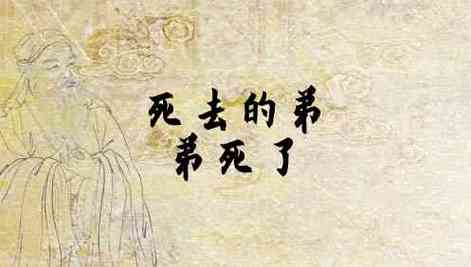 死去的弟
弟死了